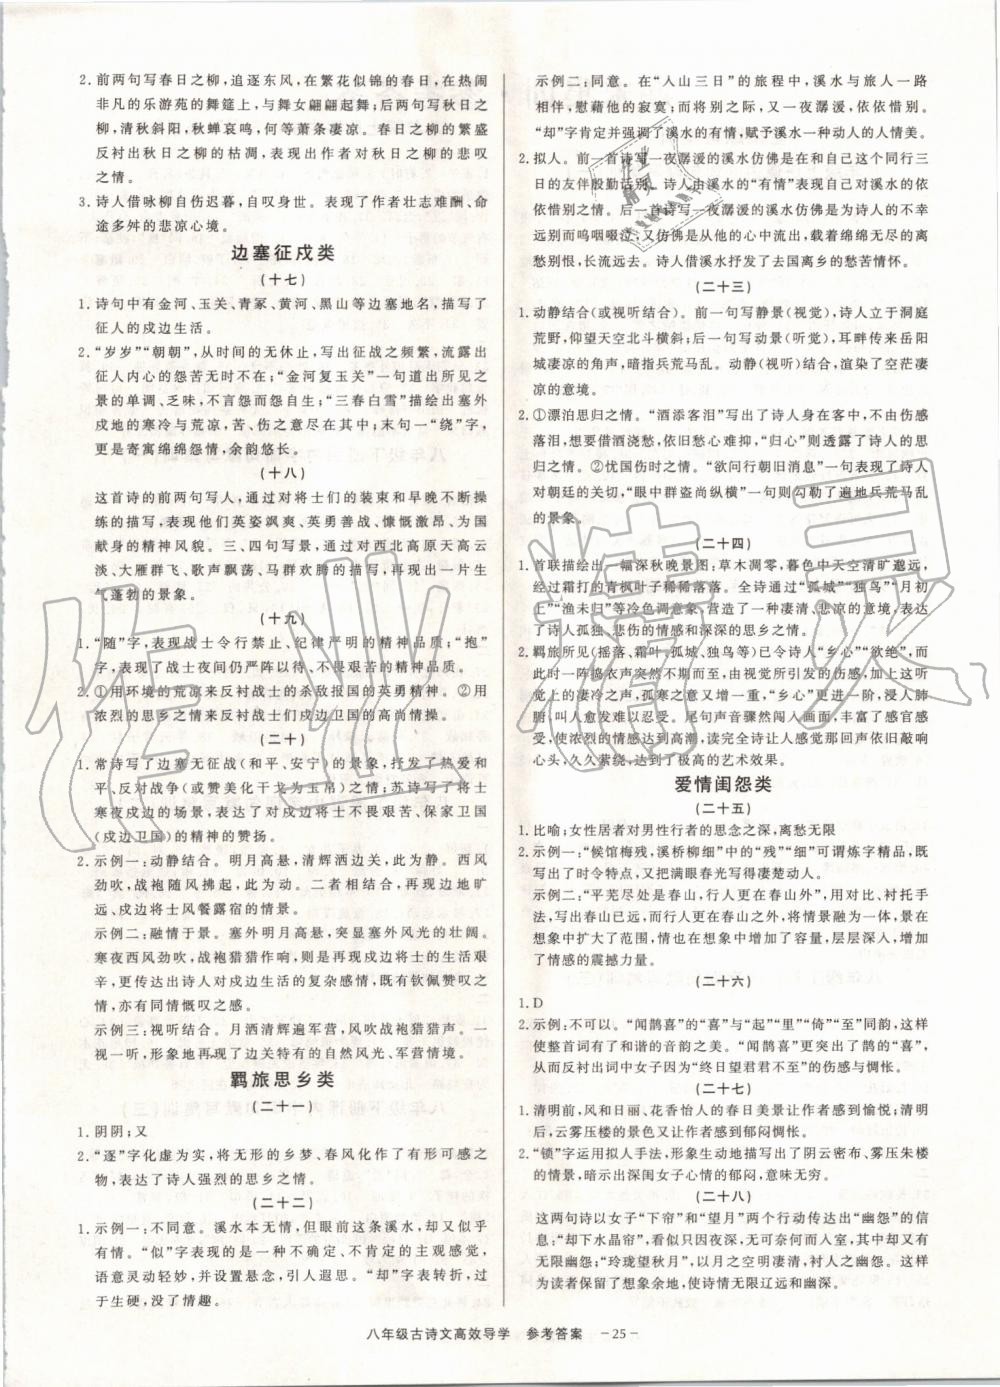 2. 前两句写春日之柳，追逐东风，在繁花似锦的春日，在热闹
非凡的乐游苑的舞筵上，与舞女翩翩起舞；后两句写秋日之
柳，清秋斜阳，秋蝉哀鸣，何等萧条凄凉。春日之柳的繁盛
反衬出秋日之柳的枯凋，表现出作者对秋日之柳的悲叹
之情。
3. 诗人借咏柳自伤迟暮，自叹身世。表现了作者壮志难酬、命
途多舛的悲凉心境。
边塞征戍类
（十七）
1. 诗句中有金河、玉关、青冢、黄河、黑山等边塞地名，描写了
征人的戍边生活。
2. “岁岁”“朝朝”，从时间的无休止，写出征战之频繁，流露出
征人内心的怨苦无时不在；“金河复玉关”一句道出所见之
景的单调、乏味，不言怨而怨自生；“三春白雪”描绘出塞外
戍地的寒冷与荒凉，苦、伤之意尽在其中；末句一“绕”字，
更是寄寓绵绵怨情，余韵悠长。
（十八）
这首诗的前两句写人，通过对将士们的装束和早晚不断操
练的描写，表现了他们英姿飒爽、英勇善战、慷慨激昂、为国
献身的精神风貌。三、四句写景，通过对西北高原天高云
淡、大雁群飞、歌声飘荡、马群欢腾的描写，再现出一片生
气蓬勃的景象。
（十九）
1. “随”字，表现战士令行禁止、纪律严明的精神品质；“抱”
字，表现了战士夜间仍严阵以待、不畏艰苦的精神品质。
2. ①用环境的荒凉来反衬战士的杀敌报国的英勇精神。②用
浓烈的思乡之情来反衬战士们戍边卫国的高尚情操。
（二十）
1. 常诗写了边塞无征战（和平、安宁）的景象，抒发了热爱和
平、反对战争（或赞美化干戈为玉帛）的情感；苏诗写了将士
寒夜戍边的场景，表达了对戍边将士不畏艰苦、保家卫国
（戍边卫国）的精神的赞扬。
2. 示例一：动静结合。明月高悬，清辉洒边关，此为静。西风
劲吹，战袍随风拂起，此为动。二者相结合，再现边地旷
远、戍边将士风餐露宿的情景。
示例二：融情于景。塞外明月高悬，突显塞外风光的壮阔。
寒夜西风劲吹，战袍猎猎作响，表现出戍边将士的生活艰
辛，更传达出诗人对戍边生活的复杂感情，既有钦佩赞叹之
情，亦有同情慨叹之感。
示例三：视听结合。月洒清辉遍军营，风吹战袍猎猎声。一
视一听，形象地再现了边关特有的自然风光、军营情境。
羁旅思乡类
（二十一）
1. 阴阴；又
2. “逐”字化虚为实，将无形的乡梦、春风化作了有形可感之
物，表达了诗人强烈的思乡之情。
（二十二）
1. 示例一：不同意。溪水本无情，但眼前这条溪水，却又似乎
有情。“似”字表现的是一种不确定、不肯定的主观感觉，
语意灵动轻妙，并设置悬念，引人遐思。“却”字表转折，过
于生硬，没了情趣。
示例二：同意。在“人山三日”的旅程中，溪水与旅人一路
相伴，慰藉他的寂寞；而将别之际，又一夜潺湲，依依惜别。
“却”字肯定并强调了溪水的有情，赋予溪水一种动人的人情美。
2. 拟人。前一首诗写一夜潺湲的溪水仿佛是在和这个同行三
日的友伴殷勤话别。诗人由溪水的“有情”表现自己对溪水的依
依惜别之情。后一首诗写一夜潺湲的溪水仿佛是为诗人的不幸
远别而呜咽啜泣，又仿佛是从他的心中流出，载着绵绵无尽的离
恨，长流远去。诗人借溪水抒发了去国离乡的愁苦情怀。
（二十三）
1. 动静结合（或视听结合）。前一句写静景（视觉），诗人立于洞庭
荒野，仰望天空北斗横斜；后一句写动景（听觉），耳畔传来岳阳
城凄凉的角声，暗指兵荒马乱。动静（视听）结合，渲染了空茫凄
凉的意境。
2. ①漂泊思归之情。“酒添客泪”写出了诗人身在客中，不由伤感
落泪，想要借酒浇愁，依旧愁心难抑，“归心”则透露了诗人归乡心
切。②忧国伤时之情。“欲问行朝旧消息”一句写出了诗人
对朝廷的关切，“眼中群盗尚纵横”一句则勾勒了遍地兵荒马乱
的景象。
（二十四）
1. 首联描绘出一幅深秋晚景图：草木凋零，暮色中天空清旷邈远，
经过霜打的青枫叶子稀稀落落。全诗通过“孤城”“独鸟”“月初
上”“渔未归”等冷色调意象，营造了一种凄清、悲凉的意境，表达了
诗人孤独、悲伤的情感和深深的思乡之情。
2. 羁旅所见（摇落、霜叶、孤城、独鸟等）已令诗人“乡心”“欲绝”，而
此时一阵捣衣声突然不期而至，由视觉所引发的伤感，加上听觉
上的凄冷之声，孤寒之意倍增，“乡心”更进一阶，浸人肺
腑，叫人愈发难以忍受。尾句声音骤然闯入画面，丰富了感官感
受，使浓烈的情感达到高潮，读完全诗让人感觉那声声回响依旧敲响
心头，久久萦绕，达到了极高的艺术效果。
爱情闺怨类
（二十五）
1. 比喻；女性居者对男性行者的思念之深，离愁无限
2. 示例一：“候馆梅残，溪桥柳细”中的“残”“细”可谓炼字精品，既
写出了时令特点，又把满眼春光写得凄楚动人。
示例二：“平芜尽处是春山，行人更在春山外”，用对比、衬托手
法，写出春山已远，而行人更在春山之外，将情景融为一体，景在
想象中扩大了范围，情也在想象中增加了容量，层层深人，增加
了情感的震撼力量。
（二十六）
1. D
2. 示例：不可以。“闻鹊喜”的“喜”与“起”“里”“倚”“至”同韵，这样
使整首词有了和谐的音韵之美。“闻鹊喜”更突出了鹊的“喜”，
从而反衬出词中女子因为“终日望君君不至”的伤感与惆怅。
（二十七）
1. 清明前，风和日丽、花香怡人的春日美景让作者感到愉悦；清明
后，云雾压楼的景色又让作者感到郁闷惆怅。
2. “锁”字运用拟人手法，形象生动地描写出了阴云密布、雾压朱楼
的情景，暗示出深闺女子心情的郁闷，意味无穷。
（二十八）
这两句诗以女子“下帘”和“望月”两个行动传达出“幽怨”的信
息；“却下水晶帘”，看似只因夜深、寒气袭人，不得不回房放帘，却
有无限幽怨；“玲珑望秋月”，以月之空明澄凄清，衬人之幽怨。这样，
为读者保留了想象余地，使诗情无限辽远和幽深。
八年级古诗文高效导学　参考答案　－25－
作业精灵